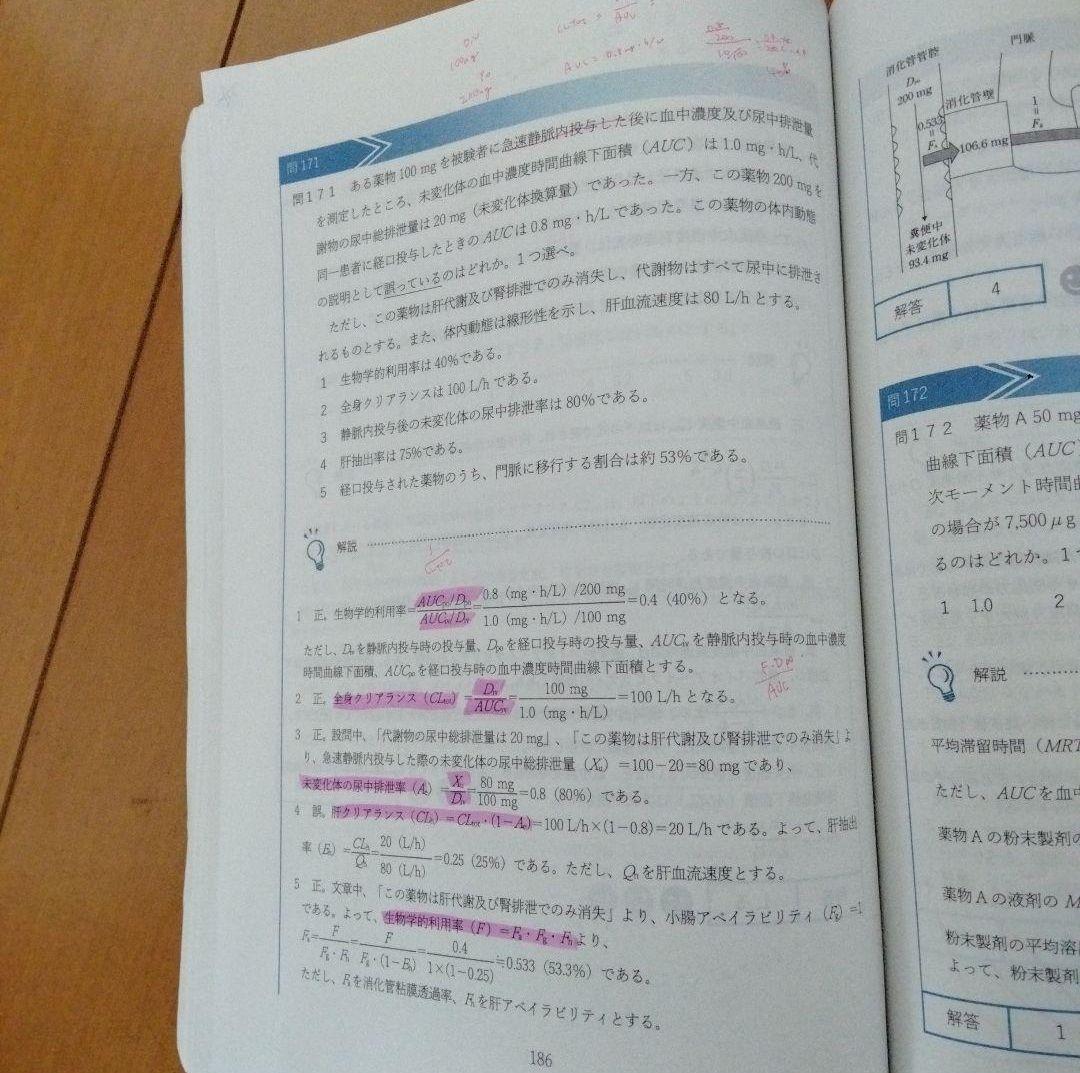 CLtot =
AUC
AUC = 0.8mg・h/L
100mg
po
200mg
問171
問171 ある薬物100 mgを被験者に急速静脈内投与した後に血中濃度及び尿中排泄量
を測定したところ、未変化体の血中濃度時間曲線下面積（AUC）は1.0 mg・h/L、代
謝物の尿中総排泄量は20 mg（未変化体換算量）であった。一方、この薬物200 mgを
同一患者に経口投与したときのAUCは0.8 mg・h/Lであった。この薬物の体内動態
の説明として誤っているのはどれか。1つ選べ。
ただし、この薬物は肝代謝及び腎排泄でのみ消失し、代謝物はすべて尿中に排泄さ
れるものとする。また、体内動態は線形性を示し、肝血流速度は80 L/hとする。
1 生物学的利用率は40％である。
2 全身クリアランスは100 L/hである。
3 静脈内投与後の未変化体の尿中排泄率は80％である。
4 肝抽出率は75％である。
5 経口投与された薬物のうち、門脈に移行する割合は約53％である。
解説
1 正。生物学的利用率=AUCpo/Dpo / AUCiv/Div = 0.8（mg・h/L）/200 mg / 1.0（mg・h/L）/100 mg =0.4（40％）となる。
ただし、Divを静脈内投与時の投与量、Dpoを経口投与時の投与量、AUCivを静脈内投与時の血中濃度
時間曲線下面積、AUCpoを経口投与時の血中濃度時間曲線下面積とする。
F・Div
AUC
2 正。全身クリアランス（CLtot）=Div/AUCiv=100 mg/1.0（mg・h/L）=100 L/hとなる。
3 正。設問中、「代謝物の尿中総排泄量は20 mg」、「この薬物は肝代謝及び腎排泄でのみ消失」よ
り、急速静脈内投与した際の未変化体の尿中総排泄量（Xu）=100－20=80 mgであり、
未変化体の尿中排泄率（Ae）=X/Div=80 mg/100 mg=0.8（80％）である。
4 誤。肝クリアランス（CLh）=CLtot・(1－Ae)=100 L/h×(1－0.8)=20 L/hである。よって、肝抽出
率（Eh）=CLh/Qh=20（L/h）/80（L/h）=0.25（25％）である。ただし、Qhを肝血流速度とする。
5 正。文章中、「この薬物は肝代謝及び腎排泄でのみ消失」より、小腸アベイラビリティ（Fg）=1
である。よって、生物学的利用率（F）=Fa・Fg・Fhより、
Fa=F/Fg・Fh=F/Fg・(1－Eh)=0.4/1×(1－0.25)=0.533（53.3％）である。
ただし、Faを消化管粘膜透過率、Fhを肝アベイラビリティとする。
186
消化管管腔
Dpo
200 mg
門脈
消化管壁
0.533
=
Fa
106.6 mg
1
=
Fg
糞便中
未変化体
93.4 mg
解答 4
問172
問172 薬物A 50 mg
曲線下面積（AUC
次モーメント時間曲
の場合が7,500μg
るのはどれか。1つ
1 1.0 2
解説
平均滞留時間（MRT
ただし、AUCを血中
薬物Aの粉末製剤の
薬物Aの液剤のM
粉末製剤の平均溶
よって、粉末製剤
解答 1